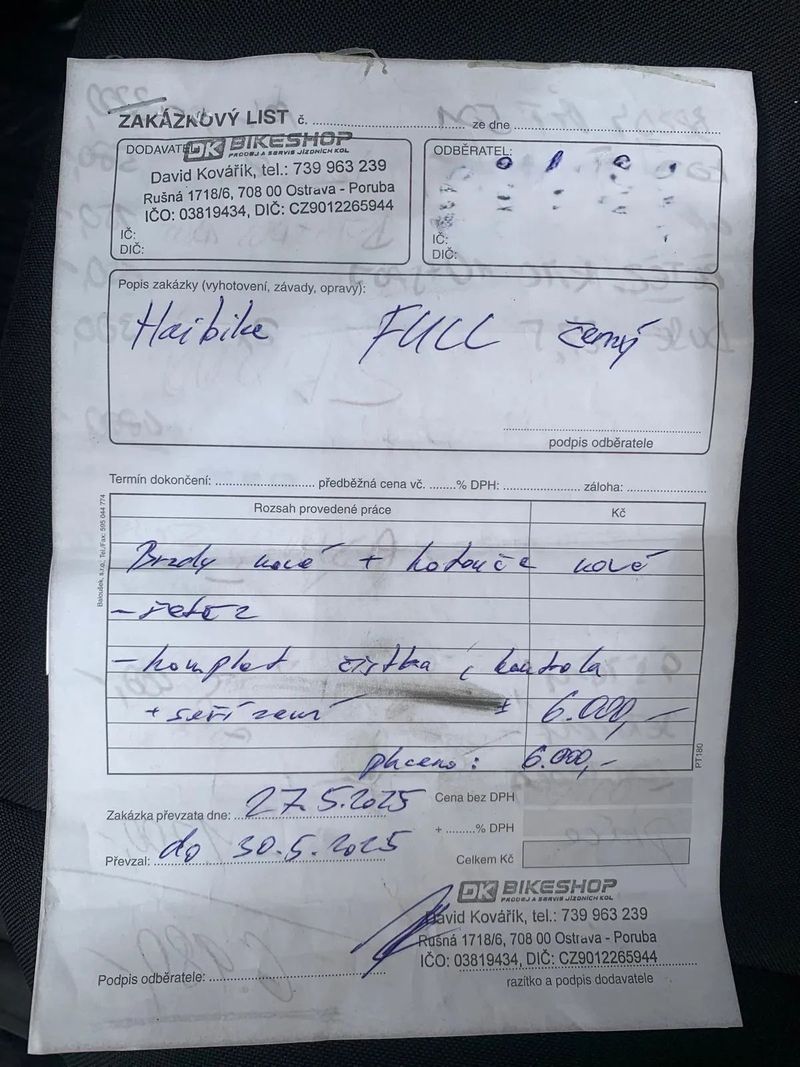 ZAKÁZKOVÝ LIST č. ze dne
DODAVATEL:
DK BIKESHOP
PRODEJ A SERVIS JÍZDNÍCH KOL
David Kovářík, tel.: 739 963 239
Rušná 1718/6, 708 00 Ostrava - Poruba
IČO: 03819434, DIČ: CZ9012265944
IČ:
DIČ:
ODBĚRATEL:
IČ:
DIČ:
Popis zakázky (vyhotovení, závady, opravy):
Haibike FULL černý
podpis odběratele
Termín dokončení: předběžná cena vč. % DPH: záloha:
Rozsah provedené práce Kč
Brzdy nové + kotouče nové
- řetěz
- komplet čistka i kontrola
+ seřízení ± 6.000,-
placeno: 6.000,-
Baloušek, s.r.o., Tel./Fax: 595 044 774
PT180
Zakázka převzata dne: 27.5.2025
Cena bez DPH
+ % DPH
Převzal: do 30.5.2025
Celkem Kč
DK BIKESHOP
PRODEJ A SERVIS JÍZDNÍCH KOL
David Kovářík, tel.: 739 963 239
Rušná 1718/6, 708 00 Ostrava - Poruba
IČO: 03819434, DIČ: CZ9012265944
Podpis odběratele:
razítko a podpis dodavatele